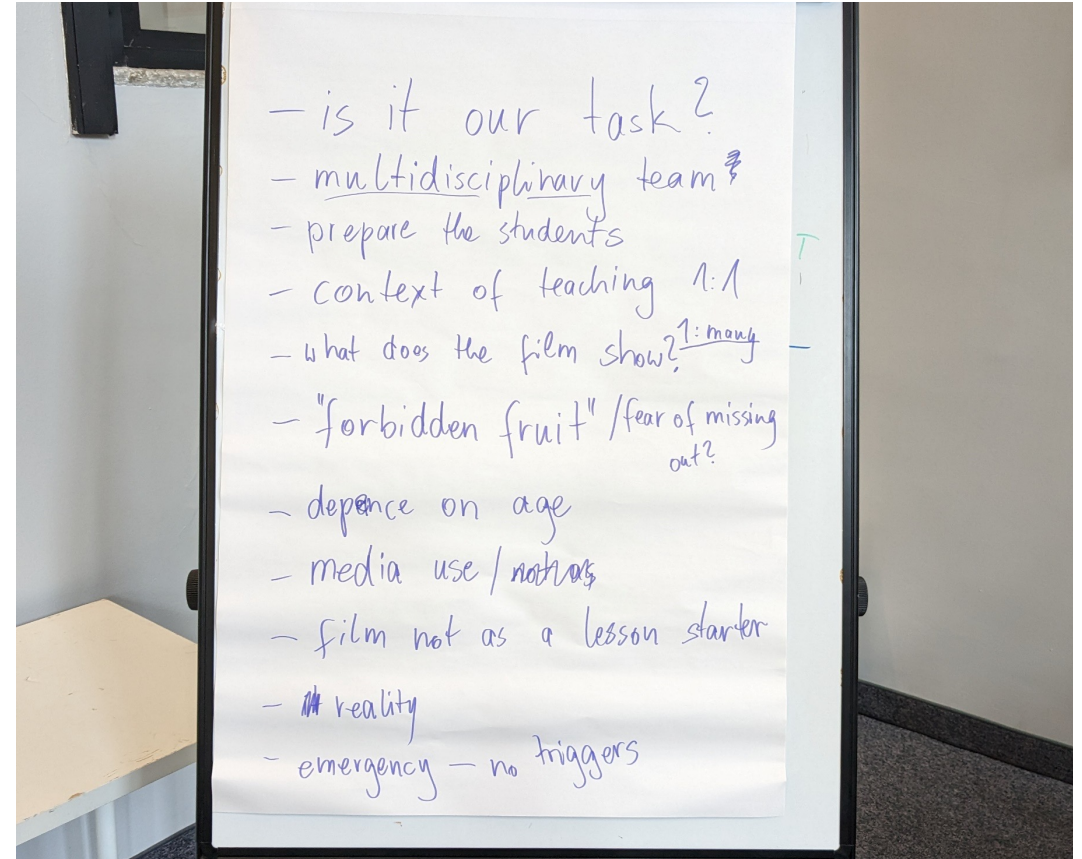 - is it our task?
- multidisciplinary team
- prepare the students
- context of teaching 1:1
1: many
- what does the film show?
- "forbidden fruit" / fear of missing
out?
- depence on age
- media use /
- film not as a lesson starter
- reality
- emergency - no triggers
T